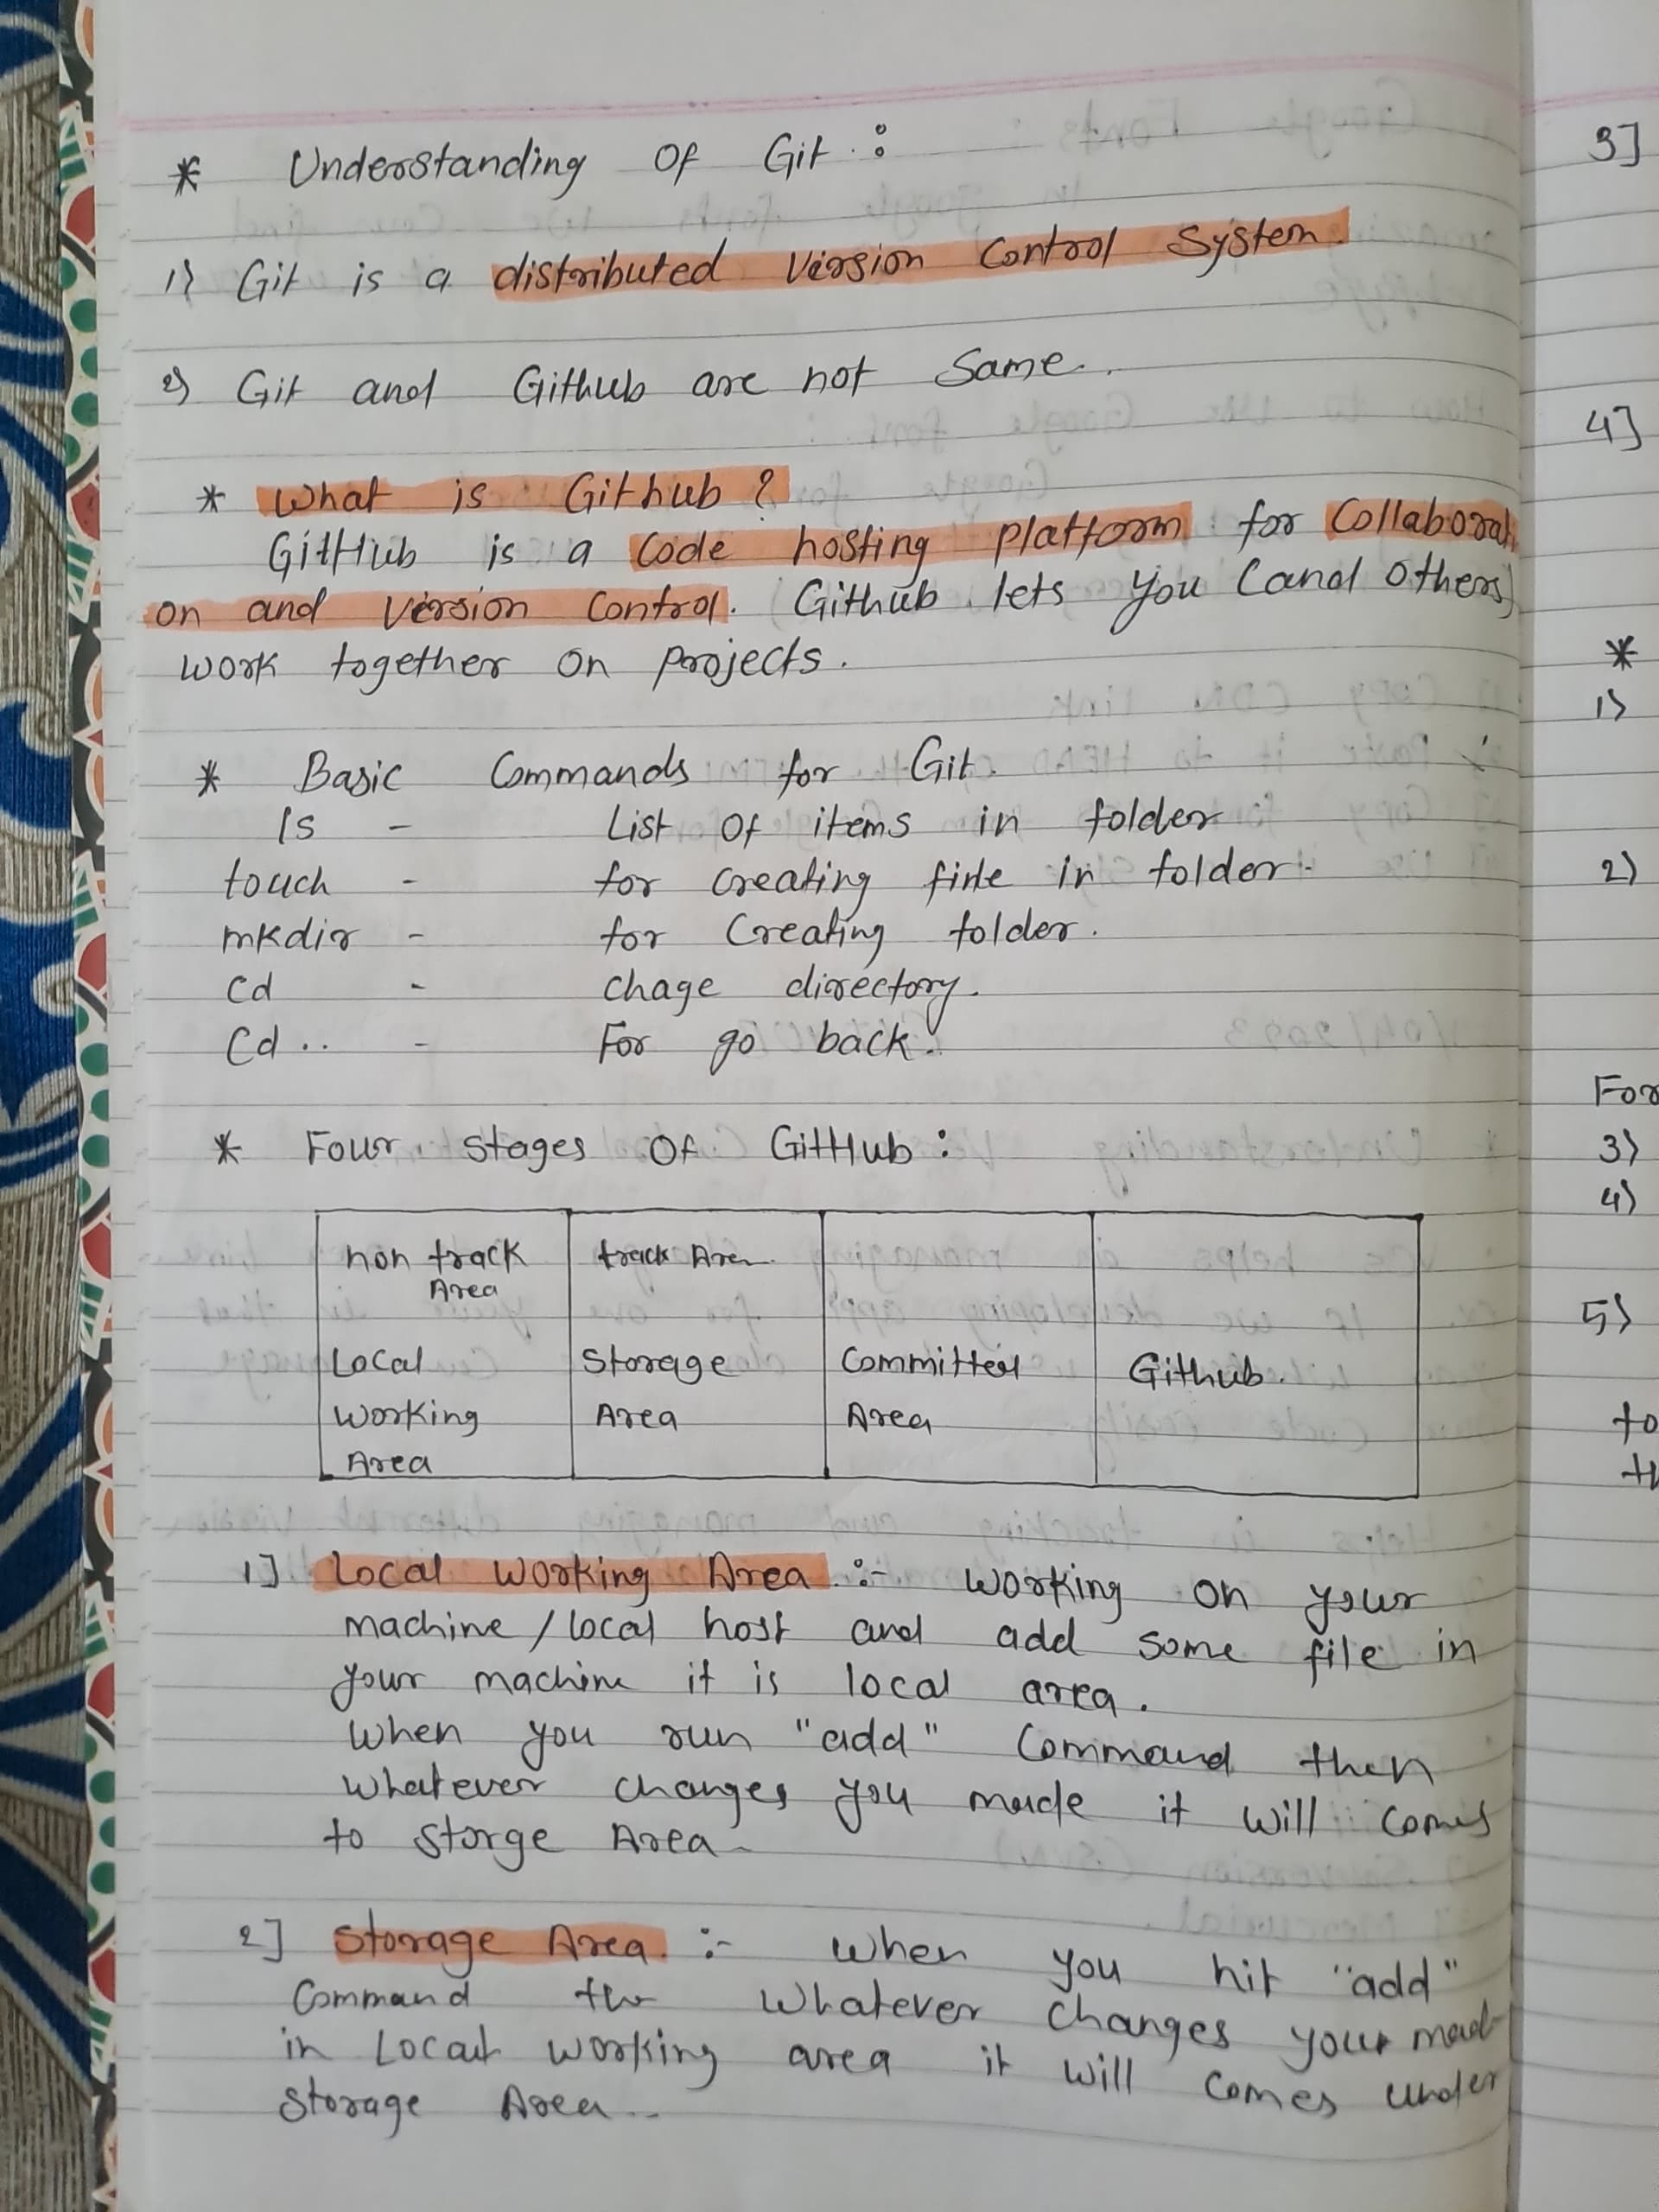 * Understanding Of Git :
1) Git is a distributed version Control System.
2) Git and Github are not same.
* What is Github ?
GitHub is a Code hosting platform for Collaborati
on and version Control. Github lets you (and others)
work together on projects.
* Basic Commands for Git.
ls - List Of items in folder
touch - for creating file in folder.
mkdir - for Creating folder.
Cd - chage directory.
Cd .. - For go back.
* Four stages Of GitHub :
non track Area
track Area
Local Working Area
Storage Area
Committed Area
Github.
1] Local Working Area :- Working on your
machine / local host and add some file in
your machine it is local area.
When you run "add" Command then
Whatever changes you made it will comes
to storge Area
2] Storage Area :- When you hit "add"
Command the Whatever changes your made
in Local Working area it will comes under
Storage Area..
3]
4]
*
1)
2)
For
3)
4)
5)
to